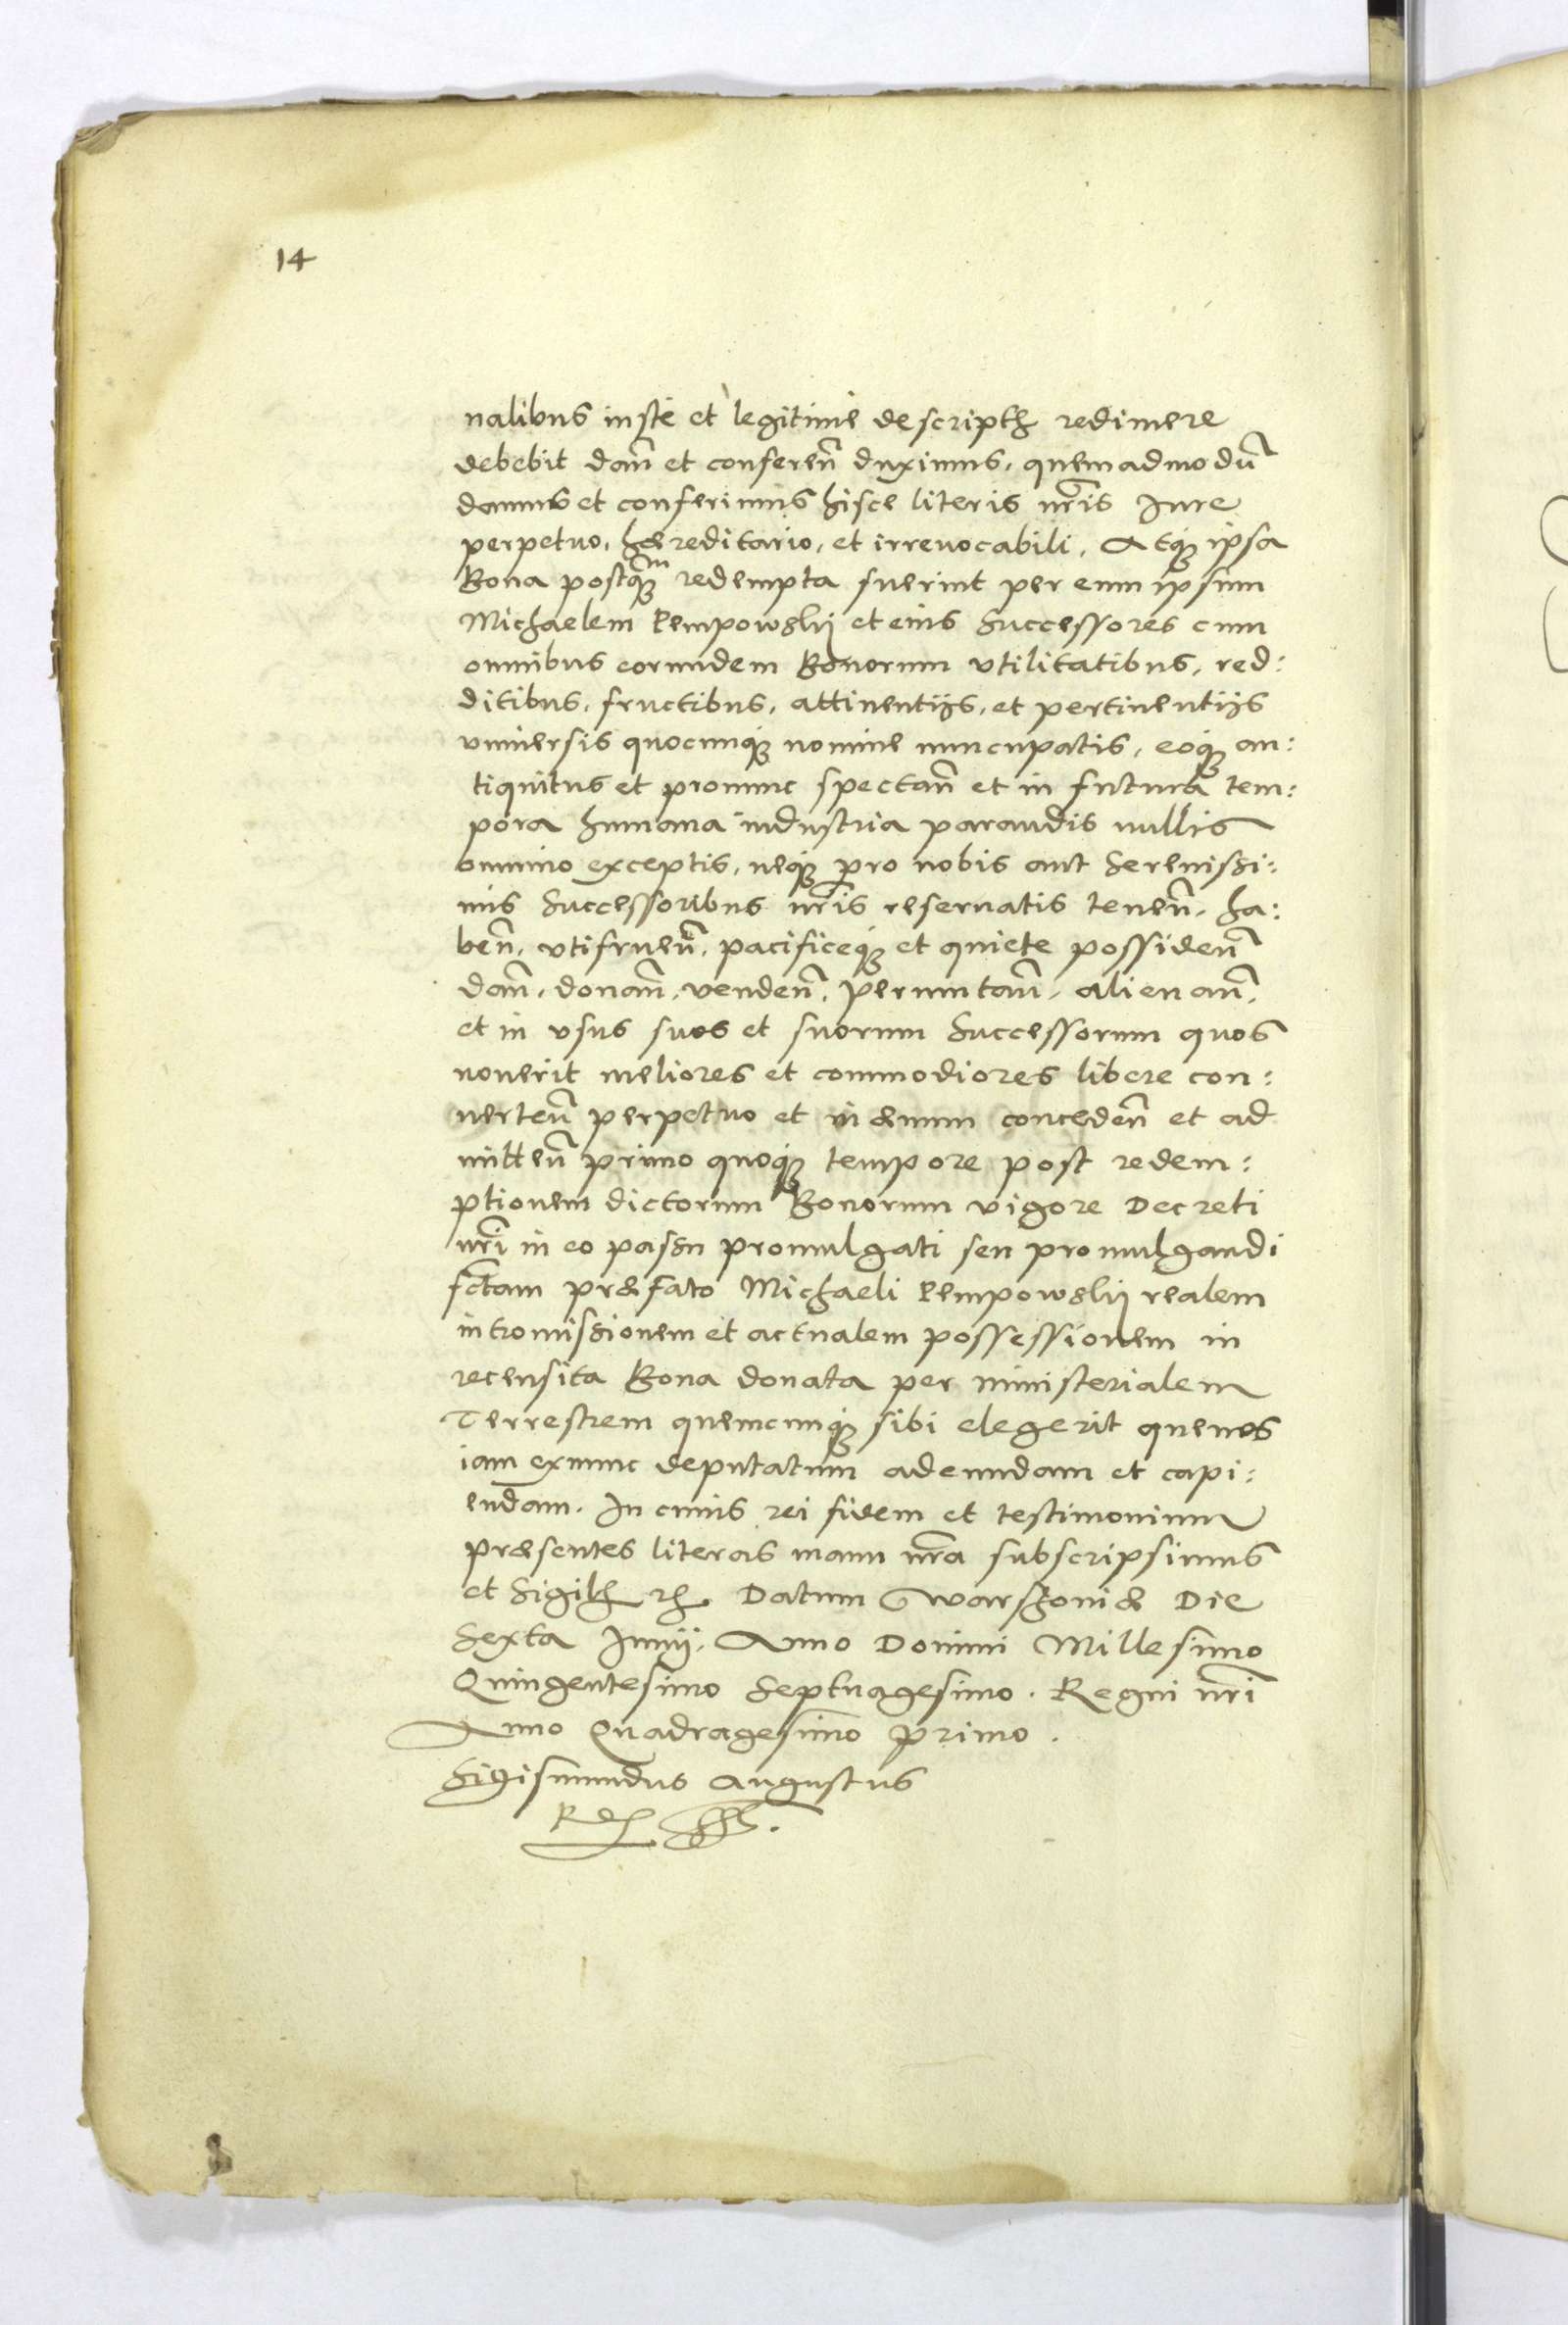 14
nalibus iusté et legitimé descriptis redimere
debebit dan̄ et conferen̄ duximus, quemadmodū
damus et conferimus hisce literis nr̄is Jure
perpetuo, hæreditario, et irreuocabili, Atq3 ipsa
Bona postq3m redempta fuerint per eum ipsum
Michaelem Lempowskij et eius Successores cum
omnibus eorumdem Bonorum vtilitatibus, red:
ditibus, fructibus, attinentijs, et pertinentijs
vniuersis quocunq3 nomine nuncupatis, eoq3 an:
tiquitus et pronunc spectan̄ et in futura tem:
pora humana industria parandis nullis
omnino exceptis, neq3 pro nobis aut Serenissi:
mis Successoribus nr̄is reseruatis tenen̄, ha:
ben̄, vtifruen̄, pacificeq3 et quiete possiden̄
dan̄, donan̄, venden̄, permutan̄, alienan̄,
et in vsus suos et suorum Successorum quos
nouerit meliores et commodiores libere con:
uerten̄ perpetuo et in æuum conceden̄ et ad
mitten̄ primo quoq3 tempore post redem:
ptionem dictorum Bonorum vigore Decreti
nr̄i in eo passu promulgati seu promulgandi
fc̄tam præfato Michaeli Lempowskij realem
intromissionem et actualem possessionem in
recensita Bona donata per ministerialem
Terrestrem quemcunq3 sibi elegerit quenos
iam exnunc deputatum ad eundam et capi:
endam. In cuius rei fidem et testimonium
præsentes literas manu nr̄a subscripsimus
et Sigill. rc. Datum Warschouiæ Die
Sexta Junij. Anno Domini Millesimo
Quingentesimo Septuagesimo. Regni nr̄i
Anno Quadragesimo primo.
Sigismundus Augustus
Rex